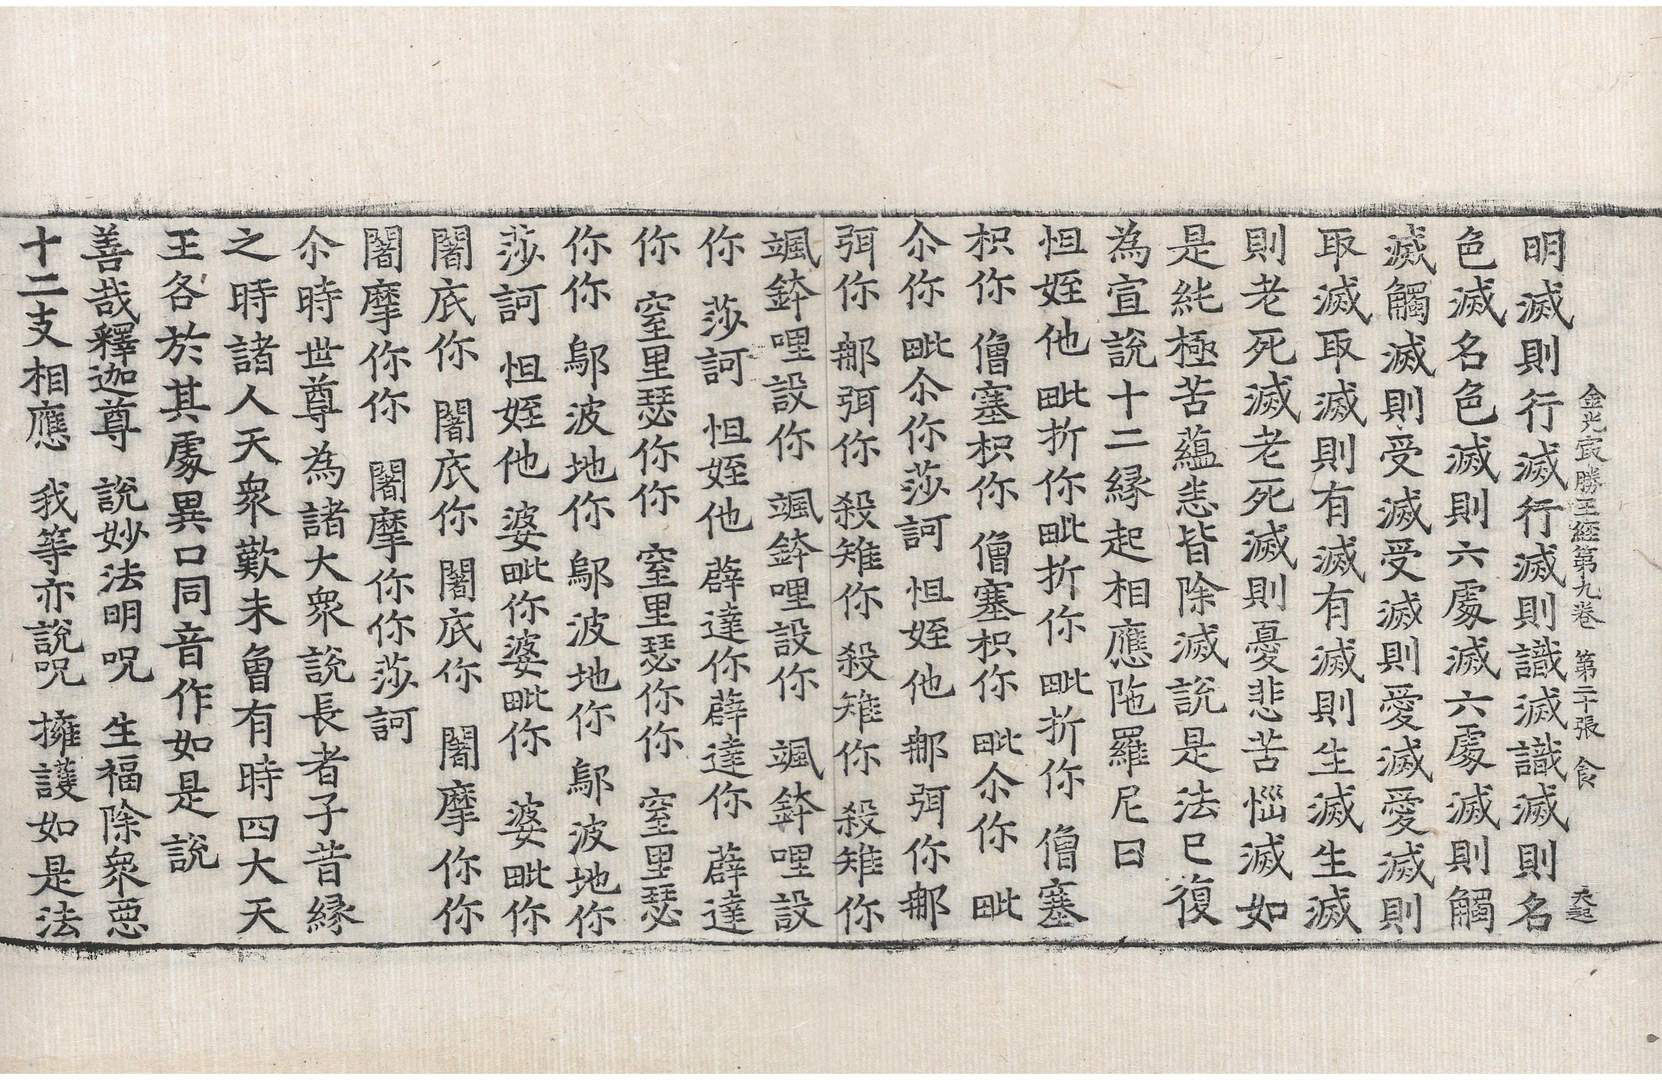 金光㝡勝王經第九卷 第二十張 食 天起
明滅則行滅行滅則識滅識滅則名
色滅名色滅則六處滅六處滅則觸
滅觸滅則受滅受滅則愛滅愛滅則
取滅取滅則有滅有滅則生滅生滅
則老死滅老死滅則憂悲苦惱滅如
是純極苦蘊悉皆除滅說是法已復
為宣說十二緣起相應陁羅尼曰
怛姪他 毗折你毗折你 毗折你 僧塞
枳你 僧塞枳你 僧塞枳你 毗尒你 毗
尒你 毗尒你莎訶 怛姪他 那弭你那
弭你 那弭你 殺雉你 殺雉你 殺雉你
颯鉢哩設你 颯鉢哩設你 颯鉢哩設
你 莎訶 怛姪他 薜達你薜達你 薜達
你 窒里瑟你你 窒里瑟你你 窒里瑟
你你 鄔波地你 鄔波地你 鄔波地你
莎訶 怛姪他 婆毗你婆毗你 婆毗你
闍底你 闍底你 闍底你 闍摩你你
闍摩你你 闍摩你你莎訶
尒時世尊為諸大衆說長者子昔緣
之時諸人天衆歎未曾有時四大天
王各於其處異口同音作如是說
善哉釋迦尊 說妙法明呪 生福除衆惡
十二支相應 我等亦說呪 擁護如是法